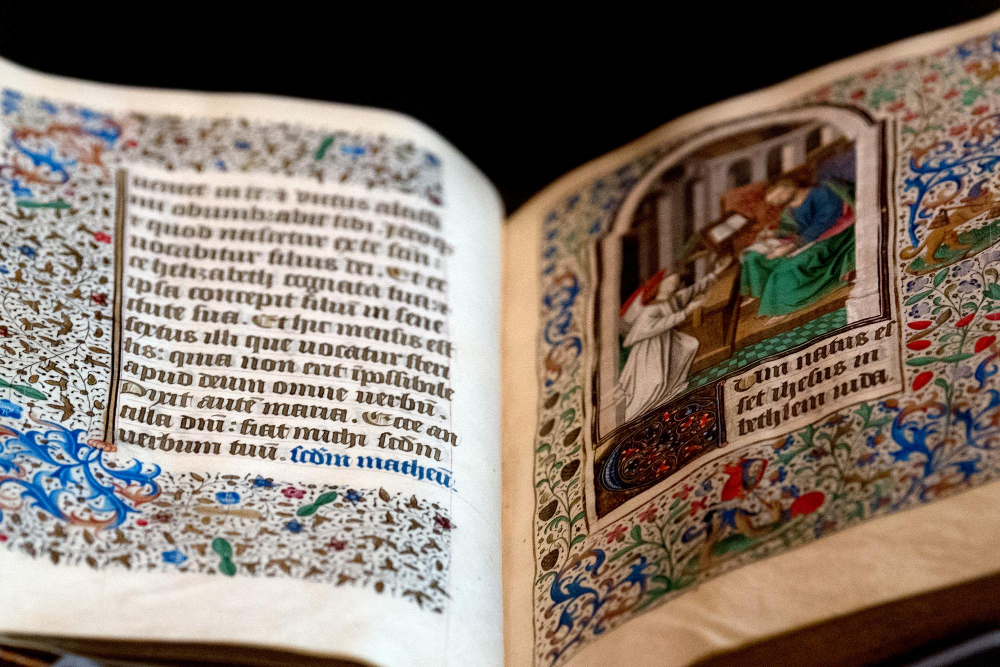 ueniet in te: ⁊ uirtus altissi
mi obumbrabit tibi. Ideoq;
⁊ quod nascetur ex te sanc.
uocabitur filius dei. Et ec
ce helizabeth cognata tua ⁊
ipsa concepit filiū in senec
tute sua. Et hic mensis est
sextus illi que uocatur steri
lis: quia non erit īpossibile
apud deum omne uerbū.
Dixit autē maria. Ecce an
cilla dnī: fiat michi scdm
uerbum tuū. scdm matheū.
Cum natus es
set ihesus in
bethleem iuda